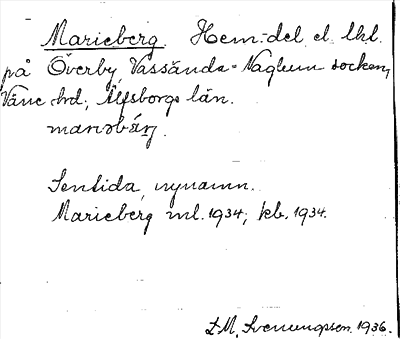 Marieberg. Hem.-del el. lhl.
på Överby, Vassända-Naglum socken,
Väne hd, Älfsborgs län.
Sentida nynamn.
Marieberg ml. 1934; kb. 1934.
L.M. Svenungsson. 1936.